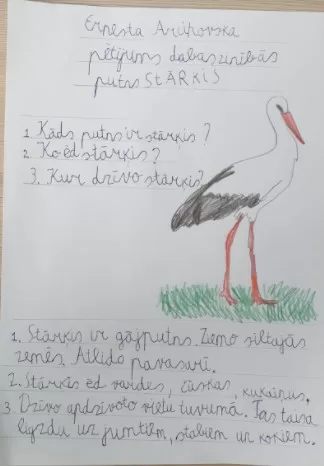 Ernesta
pētījums dabaszinībās
putns STĀRĶIS
1. Kāds putns ir stārķis?
2. Ko ēd stārķis?
3. Kur dzīvo stārķis?
1. Stārķis ir gājputns. Ziemo siltajās
zemēs. Atlido pavasarī.
2. Stārķis ēd vardes, čūskas, kukaiņus.
3. Dzīvo apdzīvoto vietu tuvumā. Tas taisa
ligzdu uz jumtiem, stabiem un kokiem.